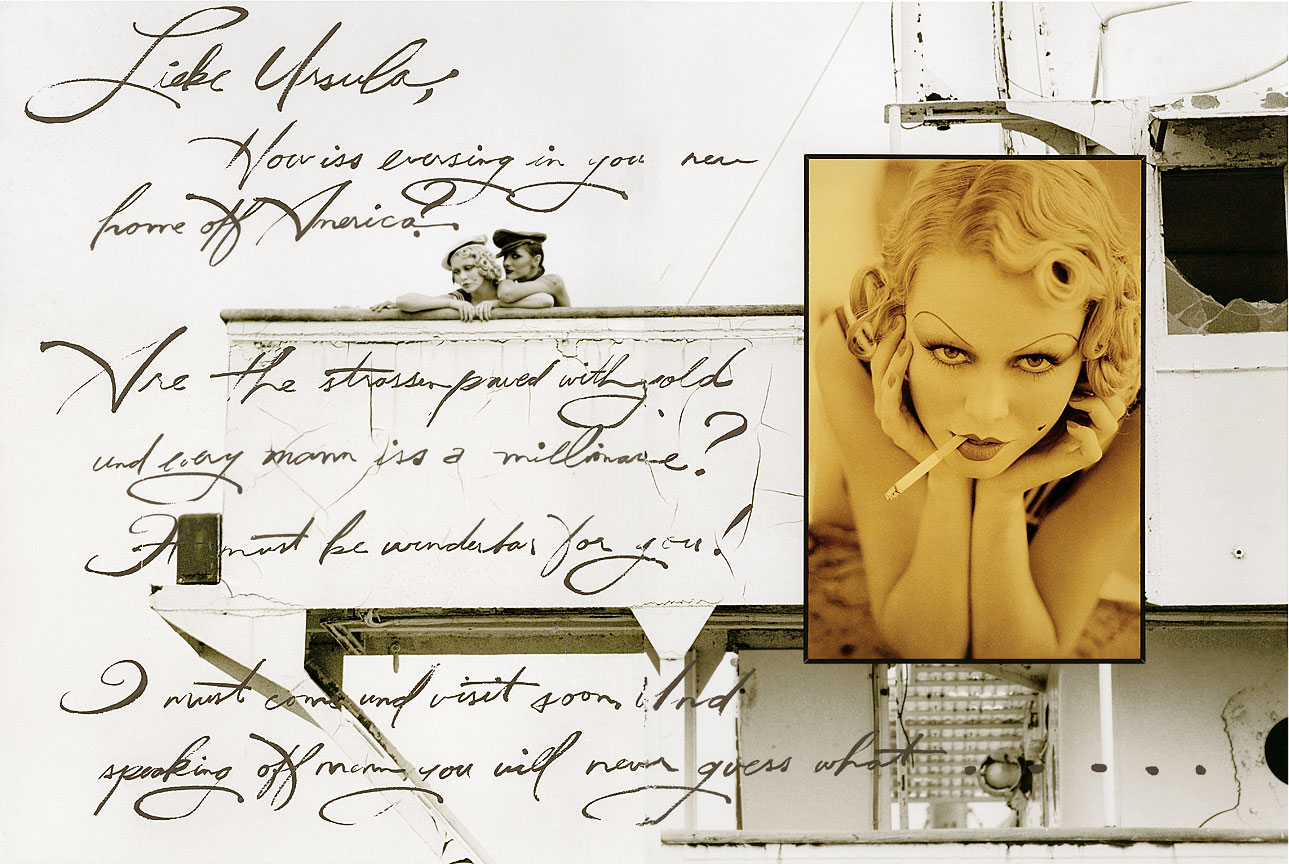 Liebe Ursula,
How iss eversing in your new
home off America?
Are the strassen paved with gold
und every mann iss a millionaire?
It must be wunderbar for you!
I must come und visit soon. And
speaking off menn you will never guess what . . . . .